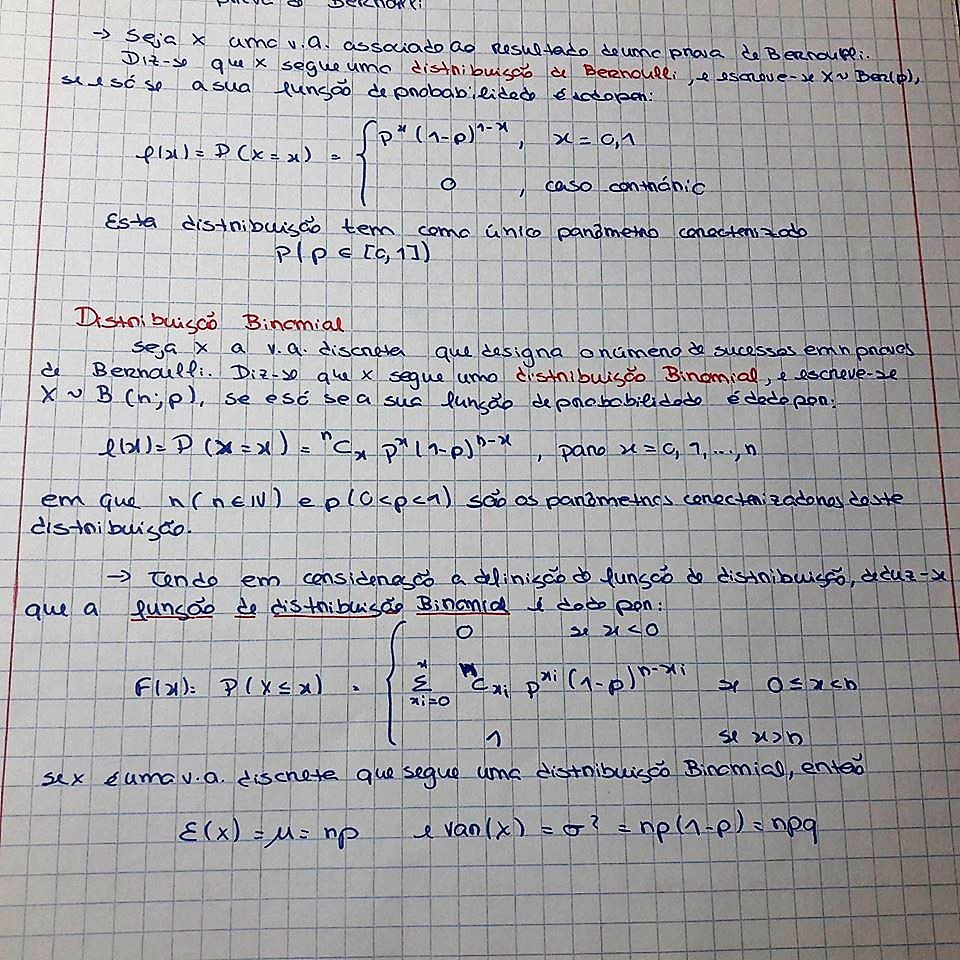 prova de Bernoulli.
→ Seja x uma v.a. associado ao resultado de uma prova de Bernoulli.
Diz-se que x segue uma distribuição de Bernoulli, e escreve-se X ~ Ber(p),
se e só se a sua função de probabilidade é dada por:
f(x) = P(X = x) = { p^x (1-p)^{1-x} , x = 0,1
0 , caso contrário
Esta distribuição tem como único parâmetro caracterizado
p (p ∈ [0,1])
Distribuição Binomial
Seja x a v.a. discreta que designa o número de sucessos em n provas
de Bernoulli. Diz-se que x segue uma distribuição Binomial, e escreve-se
X ~ B (n;p), se e só se a sua função de probabilidade é dado por:
f(x) = P (X = x) = ^nC_x p^x (1-p)^{n-x} , para x = 0, 1, ..., n
em que n (n ∈ IN) e p (0<p<1) são os parâmetros caracterizadores deste
distribuição.
→ Tendo em consideração a definição de função de distribuição, deduz-se
que a função de distribuição Binomial é dado por:
0 se x < 0
F(x) = P(X ≤ x) = { Σ_{xi=0}^{x} ^nC_{xi} p^{xi} (1-p)^{n-xi} se 0 ≤ x < n
1 se x > n
se x é uma v.a. discreta que segue uma distribuição Binomial, então
E(x) = μ = np e var(x) = σ² = np(1-p) = npq